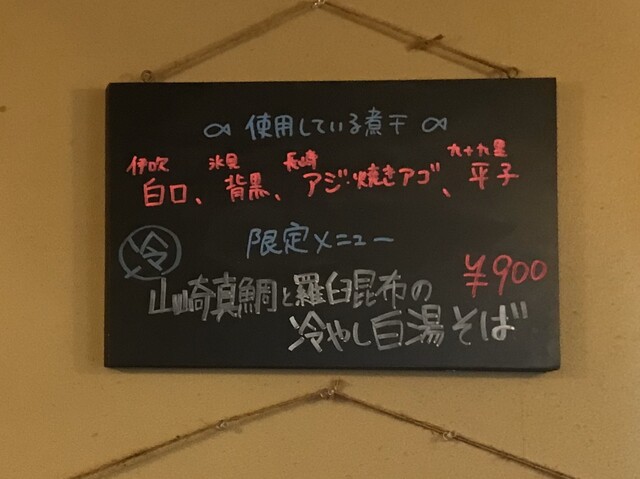 使用している煮干
伊吹 氷見 長崎 九十九里
白口、背黒、アジ・焼きアゴ、平子
冷 限定メニュー
¥900
山崎真鯛と羅臼昆布の
冷やし白湯そば